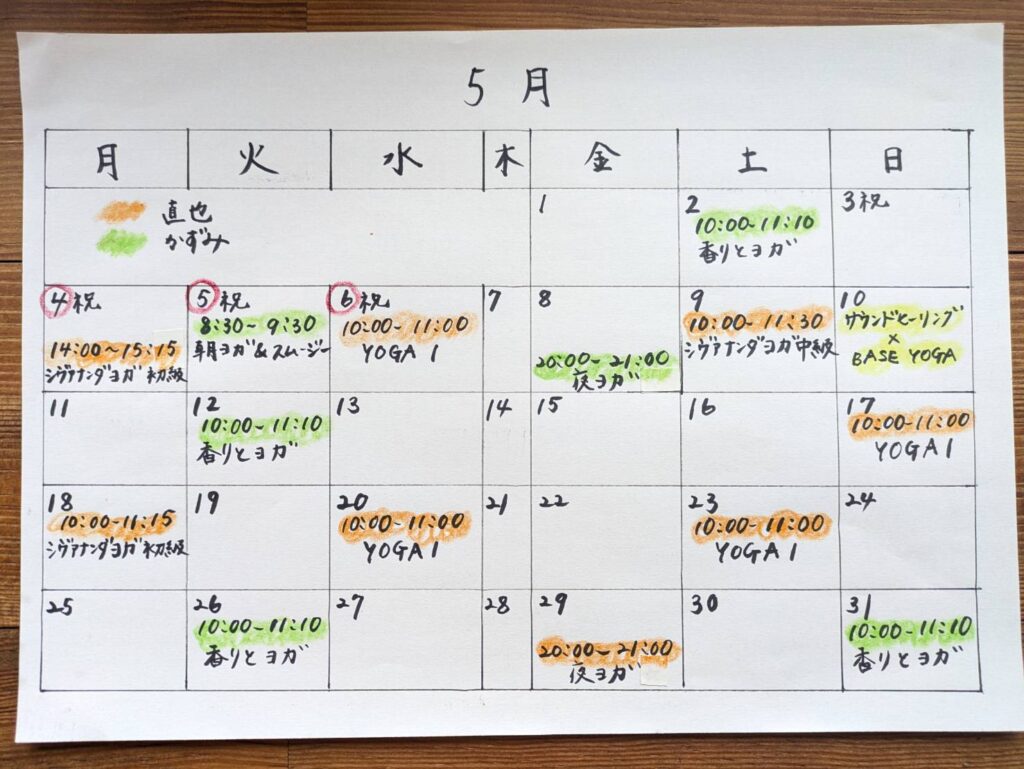 5月
月 火 水 木 金 土 日
直也
かずみ
1
2
10:00~11:10
香りとヨガ
3祝
4祝
14:00~15:15
シヴァナンダヨガ初級
5祝
8:30~9:30
朝ヨガ&スムージー
6祝
10:00~11:00
YOGA1
7
8
20:00~21:00
夜ヨガ
9
10:00~11:30
シヴァナンダヨガ中級
10
サウンドヒーリング
×
BASE YOGA
11
12
10:00~11:10
香りとヨガ
13
14
15
16
17
10:00~11:00
YOGA1
18
10:00~11:15
シヴァナンダヨガ初級
19
20
10:00~11:00
YOGA1
21
22
23
10:00~11:00
YOGA1
24
25
26
10:00~11:10
香りとヨガ
27
28
29
20:00~21:00
夜ヨガ
30
31
10:00~11:10
香りとヨガ